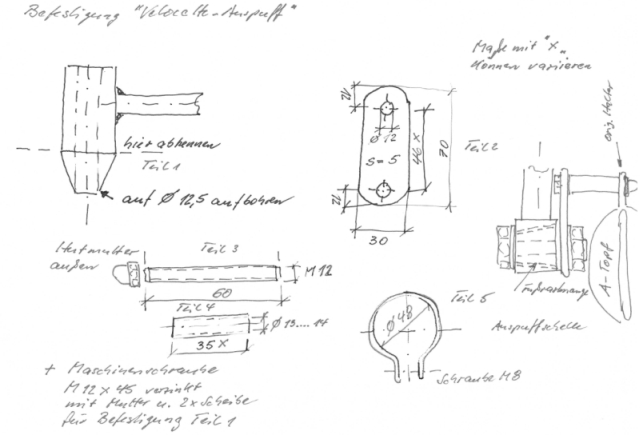 Befestigung "Velorette-Auspuff"
Maße mit "x"
können variieren
hier abtrennen
Teil 1
auf Ø 12,5 aufbohren
12
Ø 12
s = 5
12
46 x
70
30
Teil 2
orig. Halter
A-Topf
Fußrastenrange
Hutmutter
außen
Teil 3
M 12
60
Teil 4
Ø 13....14
35 x
Teil 5
Ø 48
Auspuffschelle
Schraube M8
+ Maschinenschraube
M 12 x 45 verzinkt
mit Mutter u. 2x Scheibe
für Befestigung Teil 1